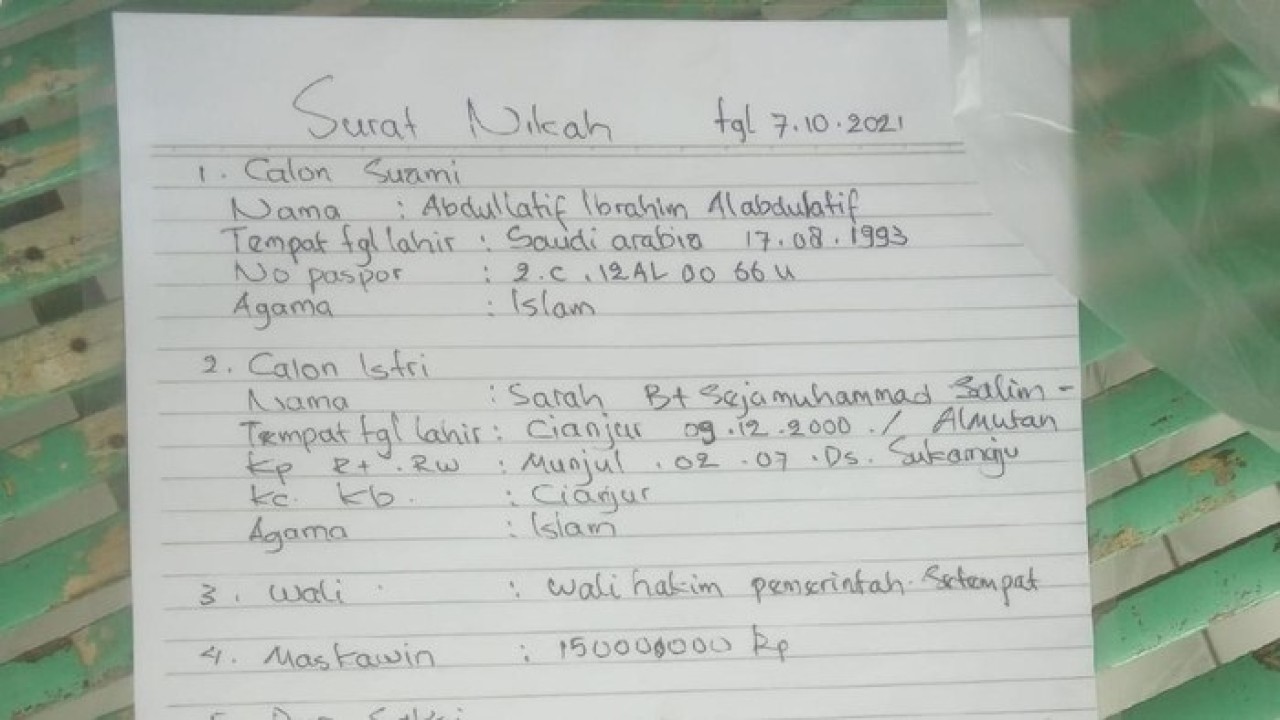 Surat Nikah tgl 7.10.2021
1. Calon Suami
Nama : Abdullatif Ibrahim Alabdulatif
Tempat tgl lahir : Saudi arabia 17.08.1993
No paspor : 2.C.12AL 00 66 u
Agama : Islam
2. Calon Istri
Nama : Sarah Bt Sejamuhammad Salim -
Tempat tgl lahir : Cianjur 09.12.2000 / Almutan
Kp Rt . RW : Munjul . 02 . 07 . Ds. Sukamaju
Kc. Kb. : Cianjur
Agama : Islam
3. Wali : Wali hakim pemerintah setempat
4. Maskawin : 150000000 Rp
5. Dua Saksi